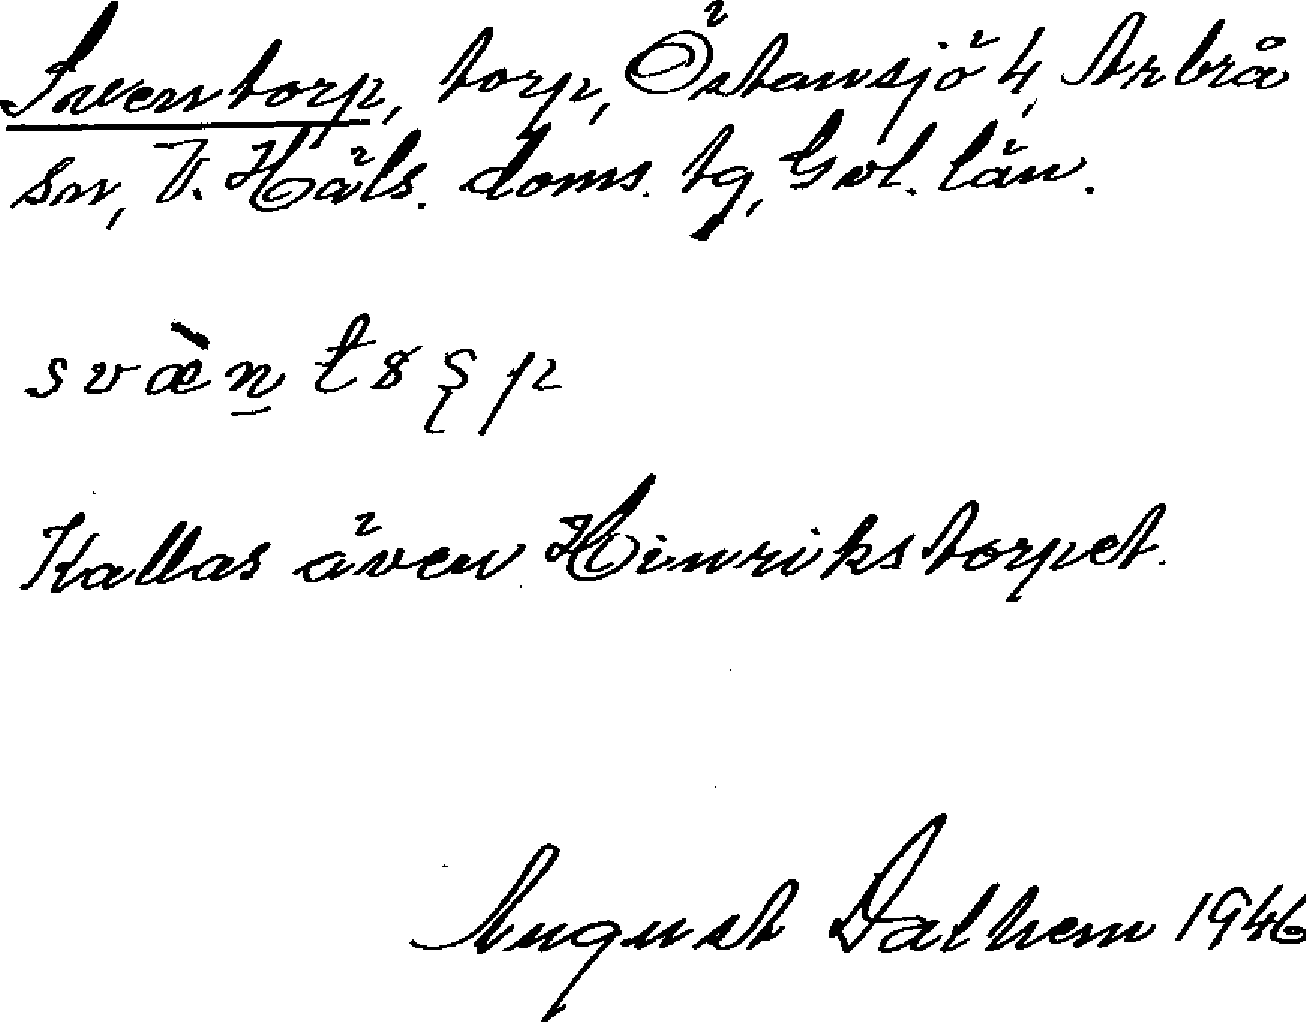 Sventorp, torp, Östansjö 4, Arbrå
sn, V. Häls. doms. tg, Gvl. län.
Kallas även Hinrikstorpet.
August Dalhem 1946